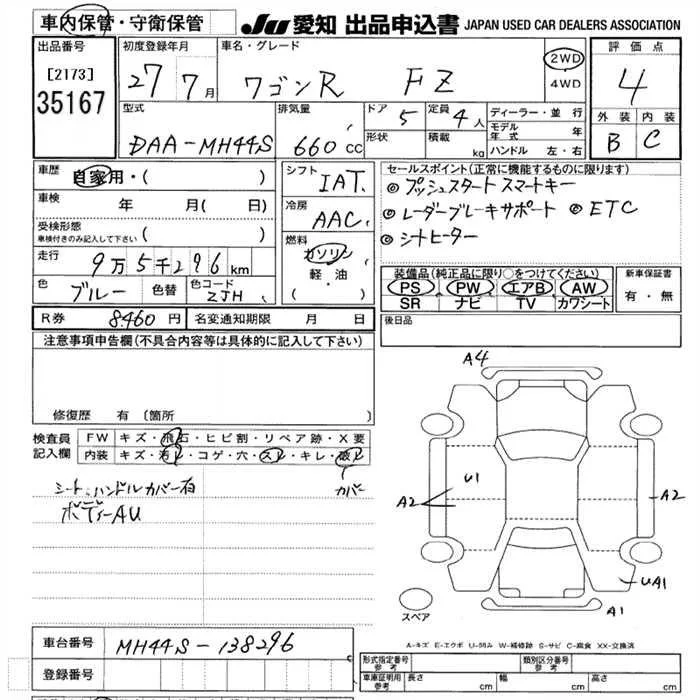 車内保管・守衛保管 JU 愛知 出品申込書 JAPAN USED CAR DEALERS ASSOCIATION
出品番号 初度登録年月 車名・グレード 評価点
[2173] 27年7月 ワゴンR FZ 2WD・4WD 4
35167
型式 排気量 ドア 5 定員 4人 ディーラー・並行 外装 内装
DAA-MH44S 660cc 形状 積載 kg モデル年式 年 B C
ハンドル 左・右
車歴 自家用・( ) シフト IAT セールスポイント(正常に機能するものに限ります)
◎プッシュスタート スマートキー
車検 年 月( 日) 冷房 AAC ◎レーダーブレーキサポート ◎ETC
受検形態 車検付きのみ記入して下さい ( ) ◎シートヒーター
走行 9万5千296km 燃料 ガソリン・軽油・( )
装備品(純正品に限り○をつけてください) 新車保証書
色 ブルー 色替 色コード ZJH PS PW エアB AW 有・無
SR ナビ TV カワシート
R券 8.460円 名変通知期限 月 日 後日品
注意事項申告欄(不具合内容等は具体的に記入して下さい)
修復歴 有 〔箇所 〕
検査員記入欄 FW キズ・飛石・ヒビ割・リペア跡・X要
内装 キズ・汚レ・コゲ・穴・スレ・キレ・破レ
シート、ハンドルカバー有 カバー
ボディーAU
A4
U1
A2 A2
UA1
A1
スペア
A-キズ E-エクボ U-凹み W-補修跡 S-サビ C-腐食 XX-交換済
車台番号 MH44S-138296
登録番号
形式指定番号 参考 類別区分番号 参考
車庫証明用 参考 長さ cm 幅 cm 高さ cm